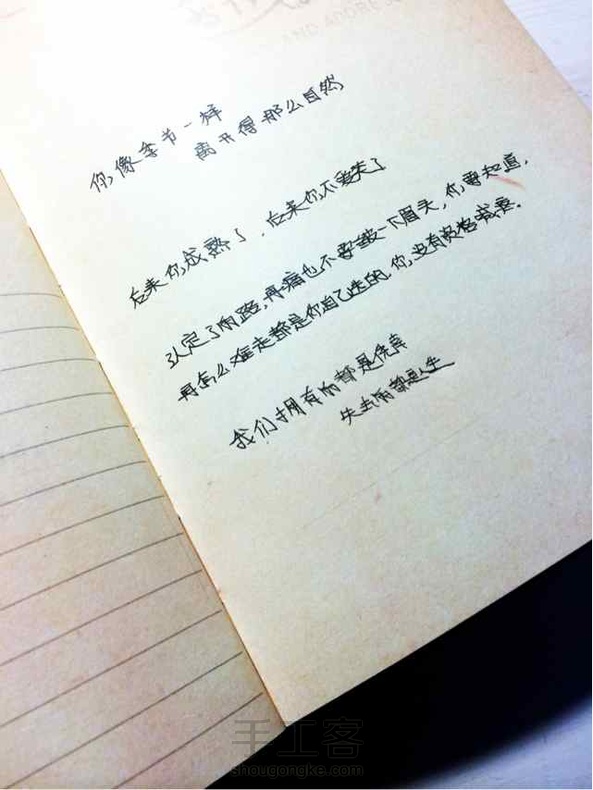 AND ADORE
你像季节一样
离开得那么自然
后来你成熟了,后来你不爱笑了
认定了的路,再痛也不要皱一下眉头,你要知道,
再怎么难走都是你自己选的,你没有资格喊疼。
我们拥有的都是侥幸
失去的都是人生
手工客
shougongke.com